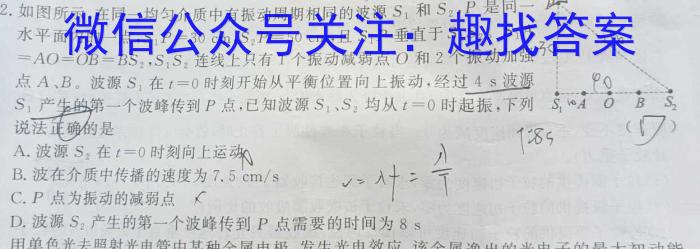 2. 如图所示,在同一均匀介质中有振动周期相同的波源 S₁ 和 S₂, P 是同一
水平面 垂直于
微信公众号关注:趣找答案
=AO=OB=BS₂, S₁S₂ 连线上只有 1 个振动减弱点 O 和 2 个振动加强
点 A、B。波源 S₁ 在 t=0 时刻开始从平衡位置向上振动,经过 4 s 波源
S₁ 产生的第一个波峰传到 P 点,已知波源 S₁、S₂ 均从 t=0 时起振,下列
S₁ A O B S₂
说法正确的是 ( )
A. 波源 S₂ 在 t=0 时刻向上运动
B. 波在介质中传播的速度为 7.5 cm/s
C. P 点为振动的减弱点
D. 波源 S₂ 产生的第一个波峰传到 P 点需要的时间为 8 s
用单色光去照射光电管中某种金属电极,发生光电效应,该金属逸出的光电子的最大初动能